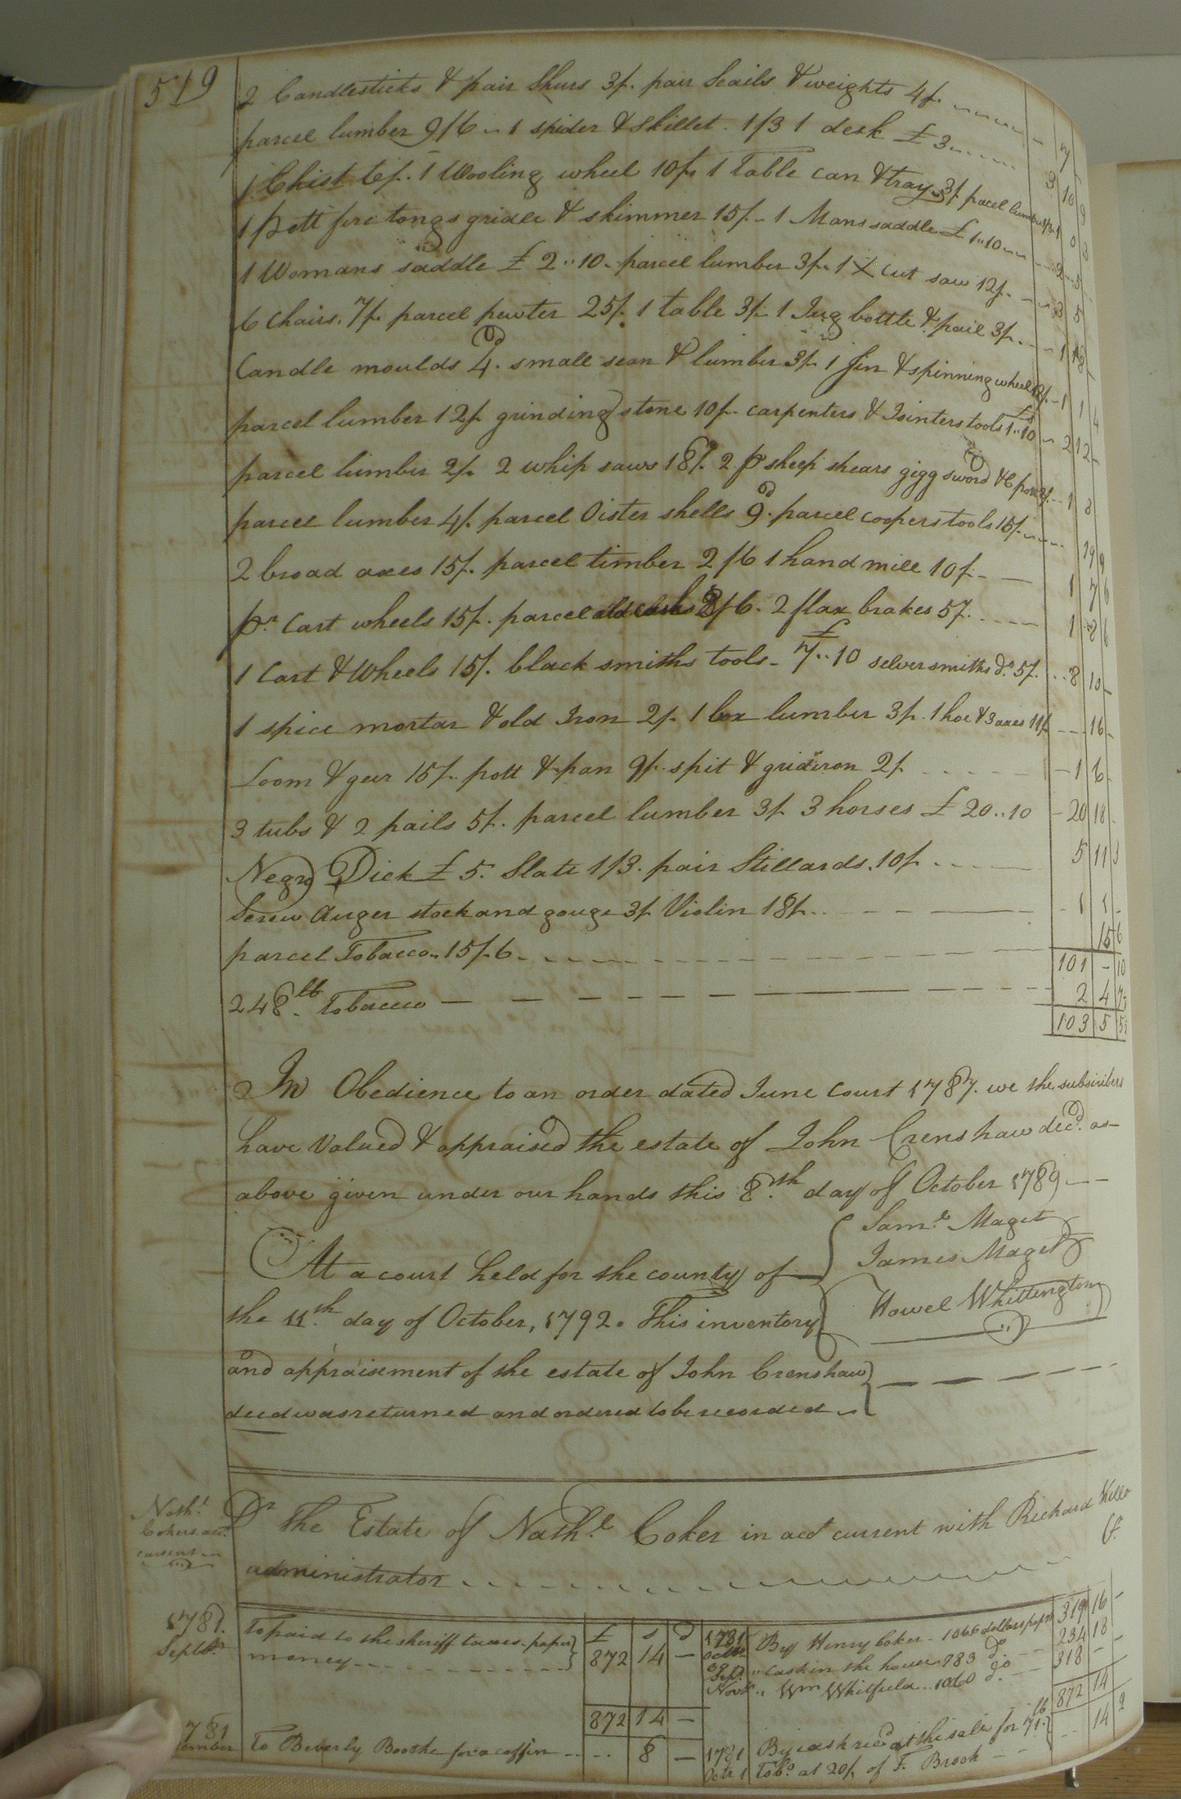 519
2 Candlesticks & pair Shurs 3/. pair Scails & weights 4/. 7
parcel lumber 9/6 1 spider & Skillet. 1/3 1 desk £ 3 3 10 9
1 Chist 6/. 1 Wooling wheel 10/. 1 Table can & tray 3/ parcel lumber 1
1 pott fire tongs gridle & skimmer 15/. 1 Mans saddle £ 1..10 2 5
1 Womans saddle £ 2..10. parcel lumber 3/. 1 X cut saw 12/. 3 5
6 Chairs. 7/. parcel pewter 25/. 1 table 3/. 1 Jug bottle & pail 3/. 1 18
Candle moulds 4d. small sean & lumber 3/. 1 Gin & spinning wheel 1 1 4
parcel lumber 12/. grinding stone 10/. carpenters & Jointers tools £1..10 2 12
parcel lumber 2/. 2 whip saws 18/. 2 pr sheep shears gigg sword &c 1 8
parcel lumber 4/. parcel Oister shells 9d. parcel coopers tools 15/. 19 9
2 broad axes 15/. parcel timber 2/6 1 hand mill 10/. 1 7 6
pr. Cart wheels 15/. parcel old casks 2/6. 2 flax brakes 5/. 1 2 6
1 Cart & Wheels 15/. black smiths tools £7..10 selversmiths do. 5/. 8 10
1 spice mortar & old Iron 2/. 1 box lumber 3/. 1 hoe & 3 axes 11/. 16
Loom & geer 15/. pott & pan 9/. spit & gridiron 2/. 1 6
3 tubs & 2 pails 5/. parcel lumber 3/. 3 horses £ 20..10 20 18
Negro Dick £ 5. Slate 1/3. pair Stillards. 10/. 5 11 3
Screw Auger stock and gouge 3/. Violin 18/. 1 1
parcel Tobacco. 15/.6 15 6
101 - 10
248lb. Tobacco 2 4 7
103 5 5
In Obedience to an order dated June Court 1787. we the subscribers
have Valued & appraised the estate of John Crenshaw decd. as
above given under our hands this 8th day of October 1789
Saml. Maget
James Maget
Howel Whittington
At a court held for the county of
the 11th day of October, 1792. This inventory
and appraisement of the estate of John Crenshaw
decd was returned and ordered to be recorded
Nathl. Cokers acct. current
Dr The Estate of Nathl. Coker in acct current with Richard Kello
administrator Cr.
1781. Septbr. To paid to the sheriff taxes paper money £ s d 872 14 -
1781 By Henry Coker 1066 dollars paper 319 16 -
Sep. " cash in the house 783 do. 234 18
Novr. " Wm Whitfield 1060 do. 318 -
872 14 - 872 14
1781 To Beverly Boothe for a coffin 8 -
1781 Octr 1 By cash recd at the sale for 71lb
Tobo. at 20/. of F. Brook 14 2